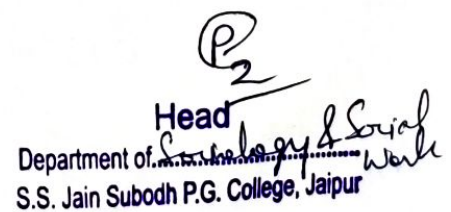 P2
Head
Department of Sociology & Social Work
S.S. Jain Subodh P.G. College, Jaipur